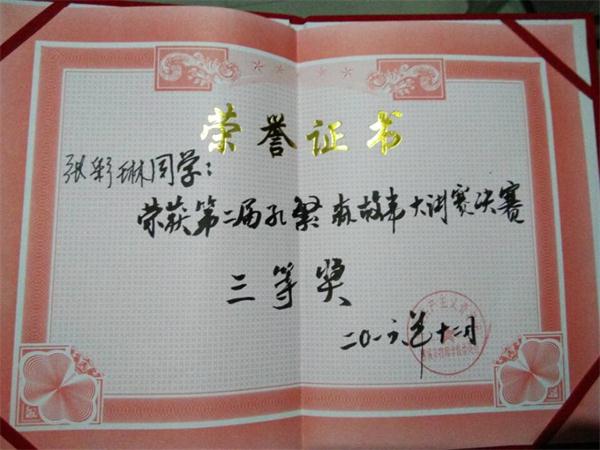 荣誉证书
张彩琳同学：
荣获第二届孔繁森故事大讲赛决赛
三等奖
二〇一六年十二月